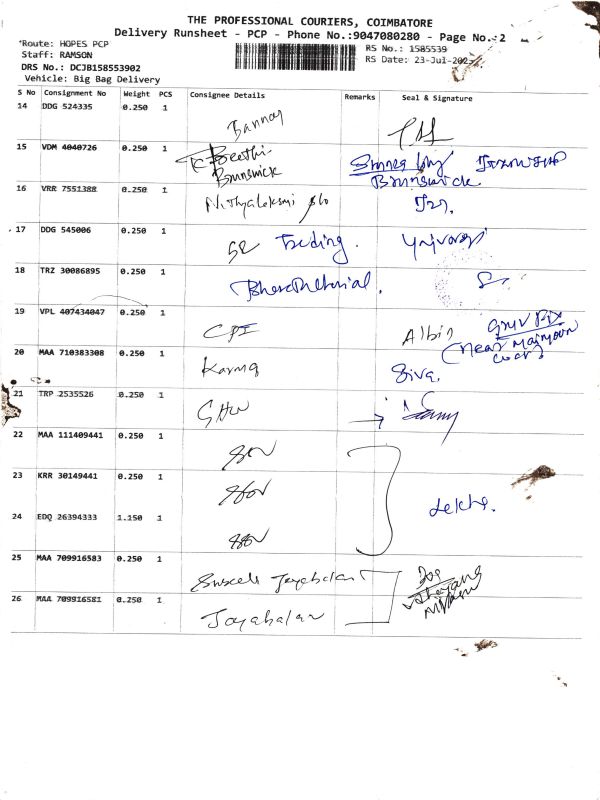 THE PROFESSIONAL COURIERS, COIMBATORE
Delivery Runsheet - PCP - Phone No.:9047080280 - Page No.:2
*Route: HOPES PCP
Staff: RAMSON
DRS No.: DCJB158553902
Vehicle: Big Bag Delivery
RS No.: 1585539
RS Date: 23-Jul-202
S No Consignment No Weight PCS Consignee Details Remarks Seal & Signature
14 DDG 524335 0.250 1 Bannay
15 VDM 4040726 0.250 1 Preethi
Brunswick
Brunswick
16 VRR 7551388 0.250 1 Nithyalakshmi
17 DDG 545006 0.250 1 Trading.
18 TRZ 30086895 0.250 1
19 VPL 407434047 0.250 1 CPI Albin
(near
20 MAA 710383308 0.250 1 Karuna Siva.
21 TRP 2535526 0.250 1
22 MAA 111409441 0.250 1
23 KRR 30149441 0.250 1
24 EDQ 26394333 1.150 1
Lekha.
25 MAA 709916583 0.250 1 Suseela Jayabalan
26 MAA 709916581 0.250 1 Jayabalan